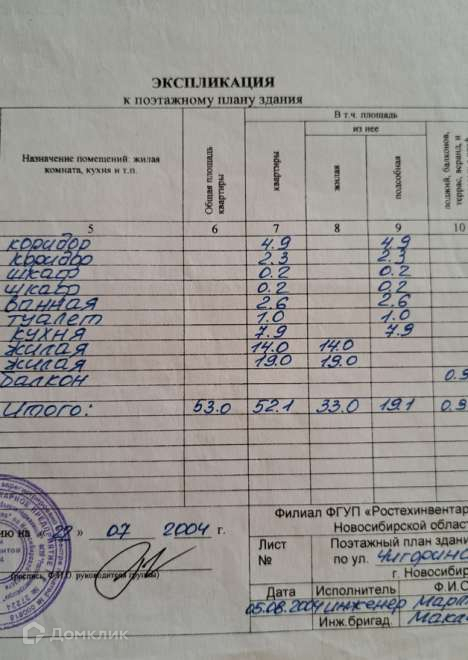 ЭКСПЛИКАЦИЯ
к поэтажному плану здания
Назначение помещений: жилая комната, кухня и т.п.
Общая площадь квартиры
В т.ч. площадь
квартиры
из нее
жилая
подсобная
лоджий, балконов, террас, веранд, и
5 6 7 8 9 10
коридор 4.9 4.9
коридор 2.3 2.3
шкаф 0.2 0.2
шкаф 0.2 0.2
ванная 2.6 2.6
туалет 1.0 1.0
кухня 7.9 7.9
жилая 14.0 14.0
жилая 19.0 19.0
балкон 0.9
Итого: 53.0 52.1 33.0 19.1 0.9
ию на «28» 07 2004 г.
(подпись, Ф.И.О. руководителя группы)
Филиал ФГУП «Ростехинвентар
Новосибирской област
Лист №
Поэтажный план здани
по ул.
г. Новосибир
Дата Исполнитель Ф.И.О
05.08.2004 инженер Март
Инж.бригад. Мака
Домклик